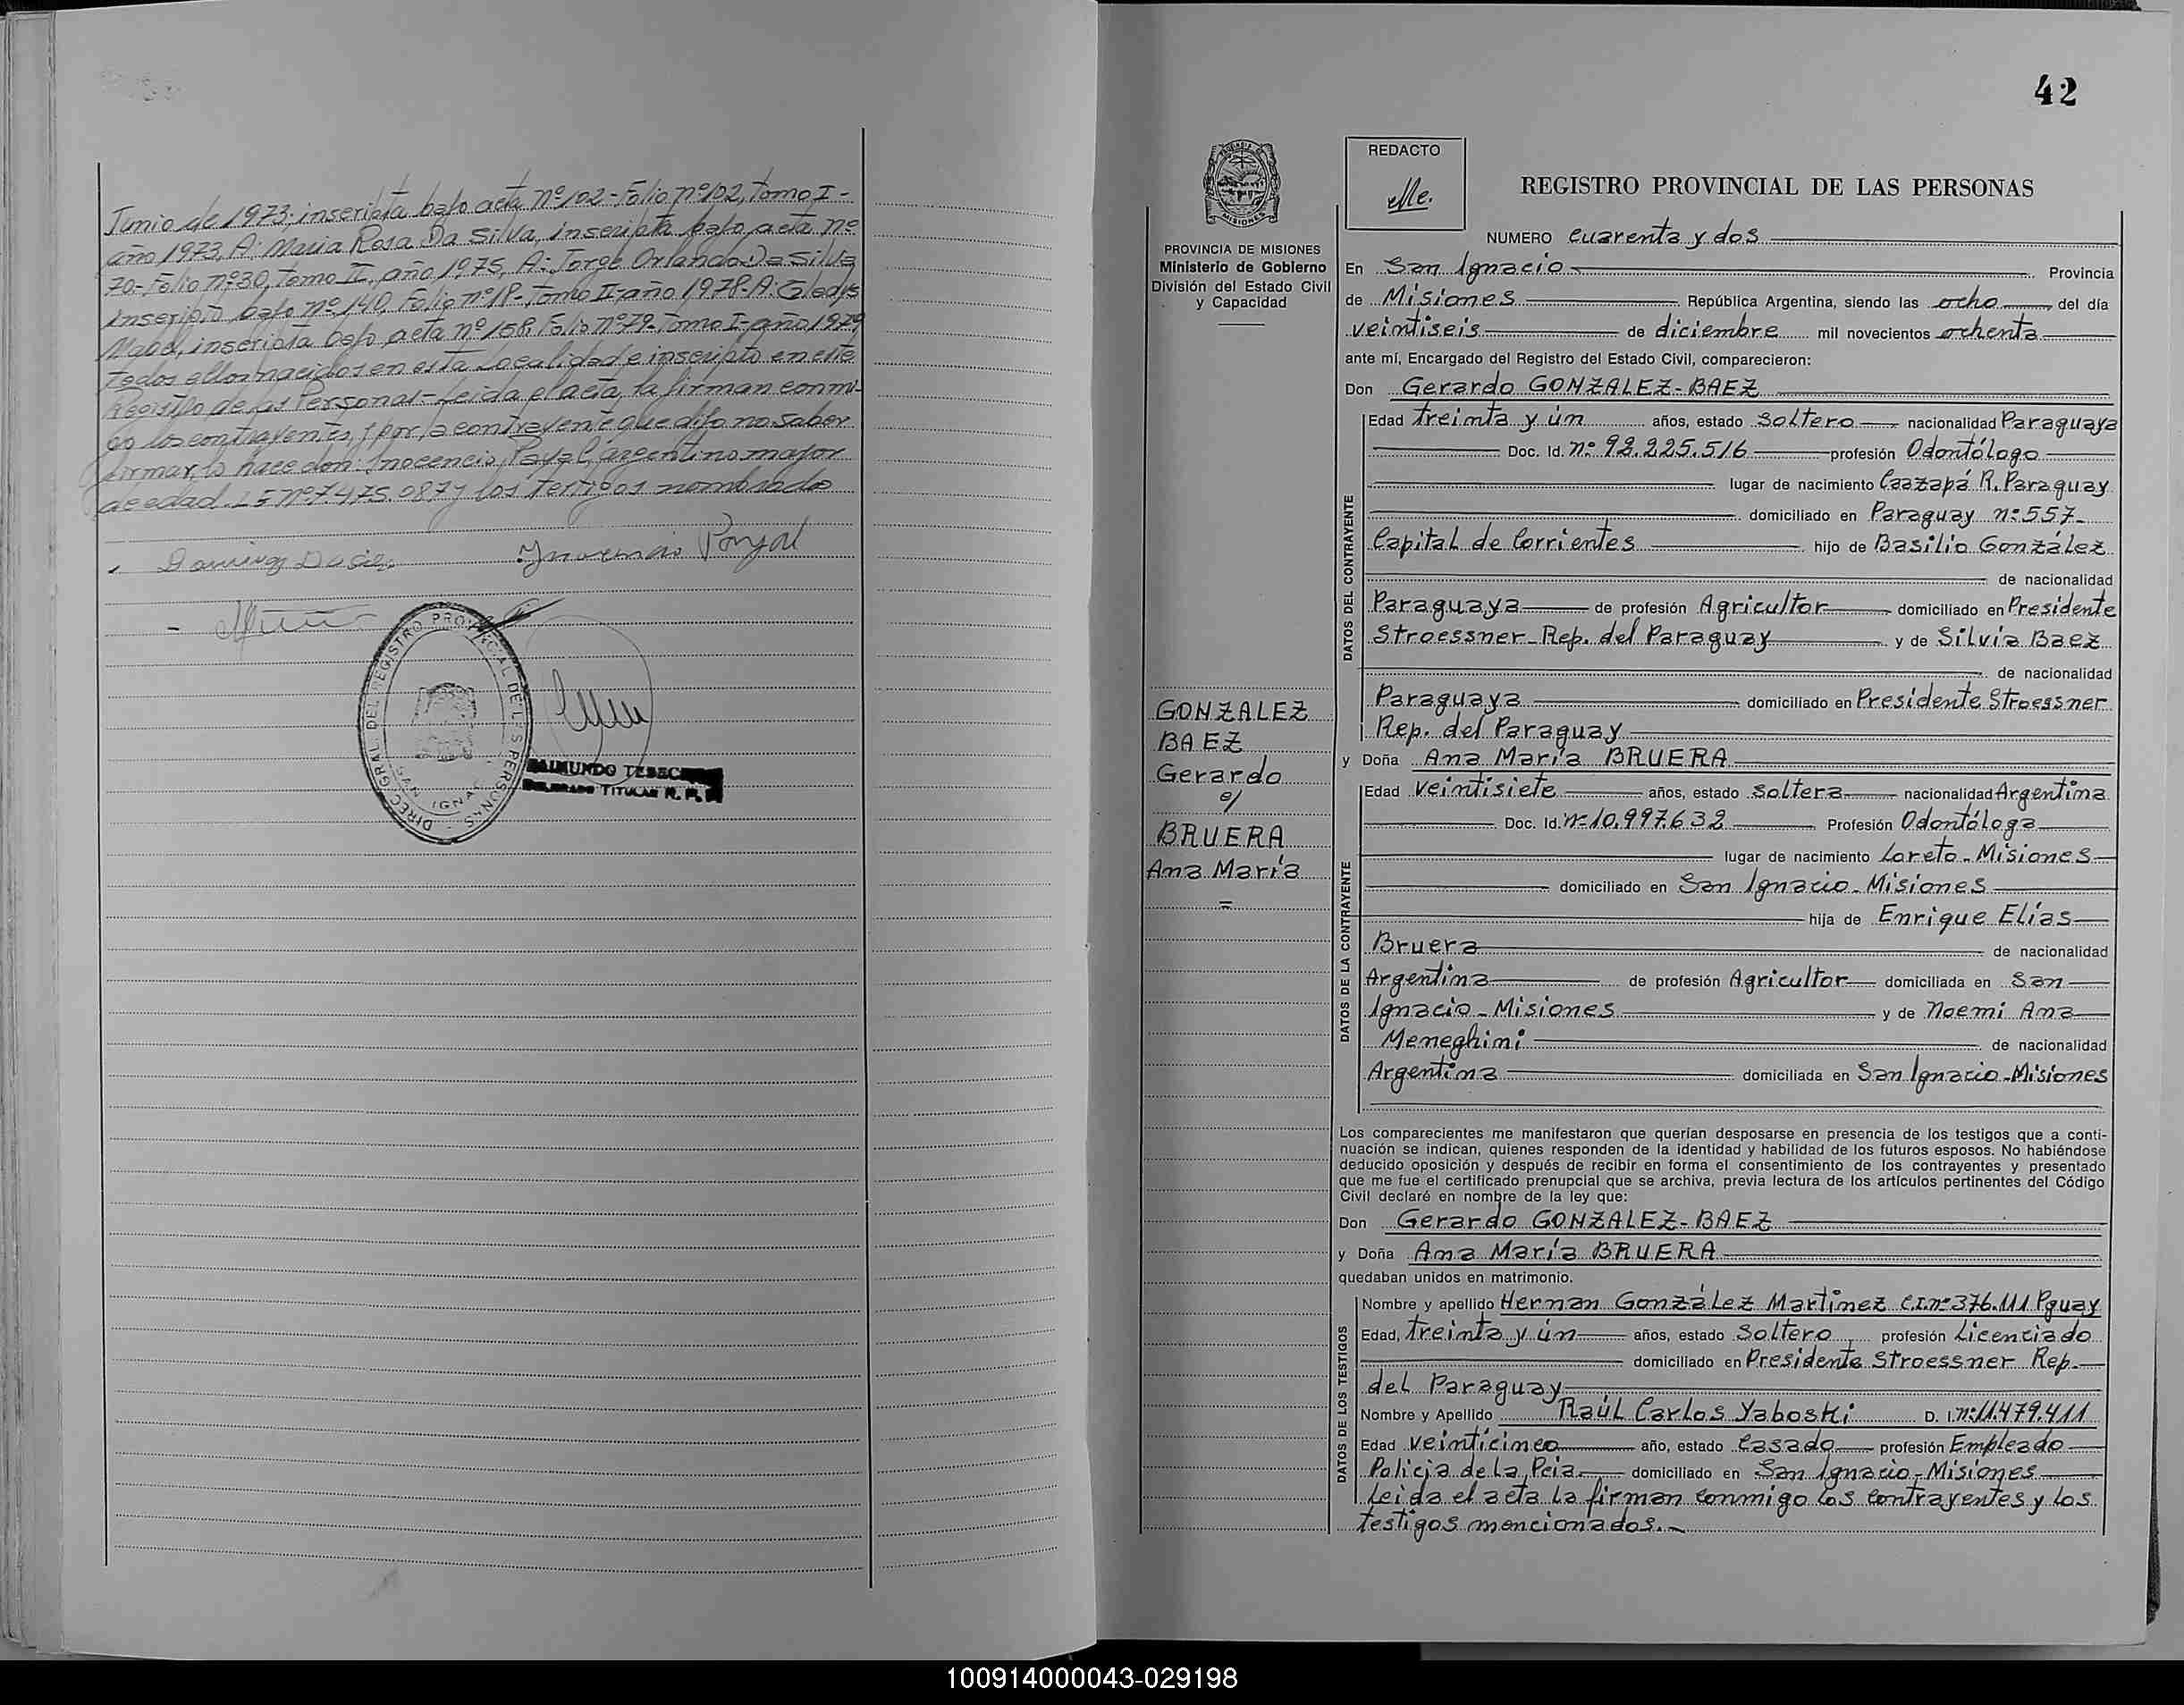 Junio de 1973; inscripta bajo acta nº 102 - Folio nº 102, Tomo I -
año 1973, A: Maria Rosa Da Silva, inscripta bajo acta nº
70 - Folio nº 30, Tomo II, año 1975, A: Jorge Orlando Da Silva
inscripto bajo nº 140, Folio nº 18 - Tomo II - año 1978 - A: Gladys
Mabel, inscripta bajo acta nº 158, Folio nº 79 - Tomo I - año 1979
todos ellos nacidos en esta localidad e inscripto en este
Registro de las Personas - Leida el acta, la firman conmi-
go los contrayentes, y por la contrayente que dijo no saber
firmar, lo hace don: Inocencio, argentino mayor
de edad. LE Nº 7.475.087 y los testigos nombrado
DIREC. GRAL. DEL REGISTRO PROVINCIAL DE LAS PERSONAS
SAN IGNACIO
RAIMUNDO
TITULAR R. P.
42
PROVINCIA DE MISIONES
Ministerio de Gobierno
División del Estado Civil
y Capacidad
GONZALEZ
BAEZ
Gerardo
c/
BRUERA
Ana María
=
REDACTO
REGISTRO PROVINCIAL DE LAS PERSONAS
NUMERO cuarenta y dos
En San Ignacio Provincia
de Misiones República Argentina, siendo las ocho del día
veintiseis de diciembre mil novecientos ochenta
ante mí, Encargado del Registro del Estado Civil, comparecieron:
Don Gerardo GONZALEZ-BAEZ
DATOS DEL CONTRAYENTE
Edad treinta y ún años, estado Soltero nacionalidad Paraguaya
Doc. Id. nº 92.225.516 profesión Odontólogo
lugar de nacimiento Caazapá R. Paraguay
domiciliado en Paraguay nº 557-
Capital de Corrientes hijo de Basilio González
de nacionalidad
Paraguaya de profesión Agricultor domiciliado en Presidente
Stroessner - Rep. del Paraguay y de Silvia Baez
de nacionalidad
Paraguaya domiciliado en Presidente Stroessner
Rep. del Paraguay
y Doña Ana María BRUERA
DATOS DE LA CONTRAYENTE
Edad veintisiete años, estado soltera nacionalidad Argentina
Doc. Id. nº 10.997.632 Profesión Odontóloga
lugar de nacimiento Loreto - Misiones
domiciliado en San Ignacio - Misiones
hija de Enrique Elías
Bruera de nacionalidad
Argentina de profesión Agricultor domiciliada en San
Ignacio - Misiones y de Noemi Ana
Meneghini de nacionalidad
Argentina domiciliada en San Ignacio - Misiones
Los comparecientes me manifestaron que querían desposarse en presencia de los testigos que a conti-
nuación se indican, quienes responden de la identidad y habilidad de los futuros esposos. No habiéndose
deducido oposición y después de recibir en forma el consentimiento de los contrayentes y presentado
que me fue el certificado prenupcial que se archiva, previa lectura de los artículos pertinentes del Código
Civil declaré en nombre de la ley que:
Don Gerardo GONZALEZ-BAEZ
y Doña Ana María BRUERA
quedaban unidos en matrimonio.
DATOS DE LOS TESTIGOS
Nombre y apellido Hernan González Martinez C.I. nº 376.111 Pguay
Edad, treinta y ún años, estado Soltero profesión Licenciado
domiciliado en Presidente Stroessner Rep.
del Paraguay
Nombre y Apellido Raúl Carlos Yaboski D. I. nº 11.479.411
Edad veinticinco año, estado Casado profesión Empleado
Policia de la Pcia. domiciliado en San Ignacio - Misiones
Leida el acta la firman conmigo los contrayentes y los
testigos mencionados.-
100914000043-029198